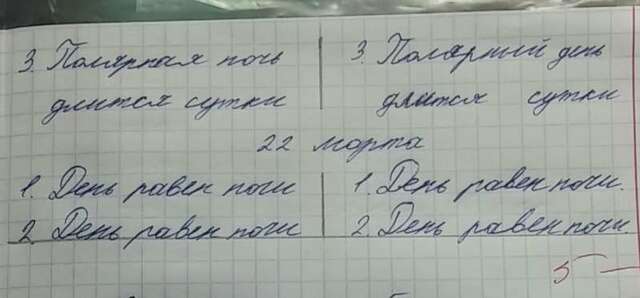 3. Полярная ночь
длится сутки
3. Полярный день
длится сутки
22 марта
1. День равен ночи
2. День равен ночи
1. День равен ночи.
2. День равен ночи.
5-